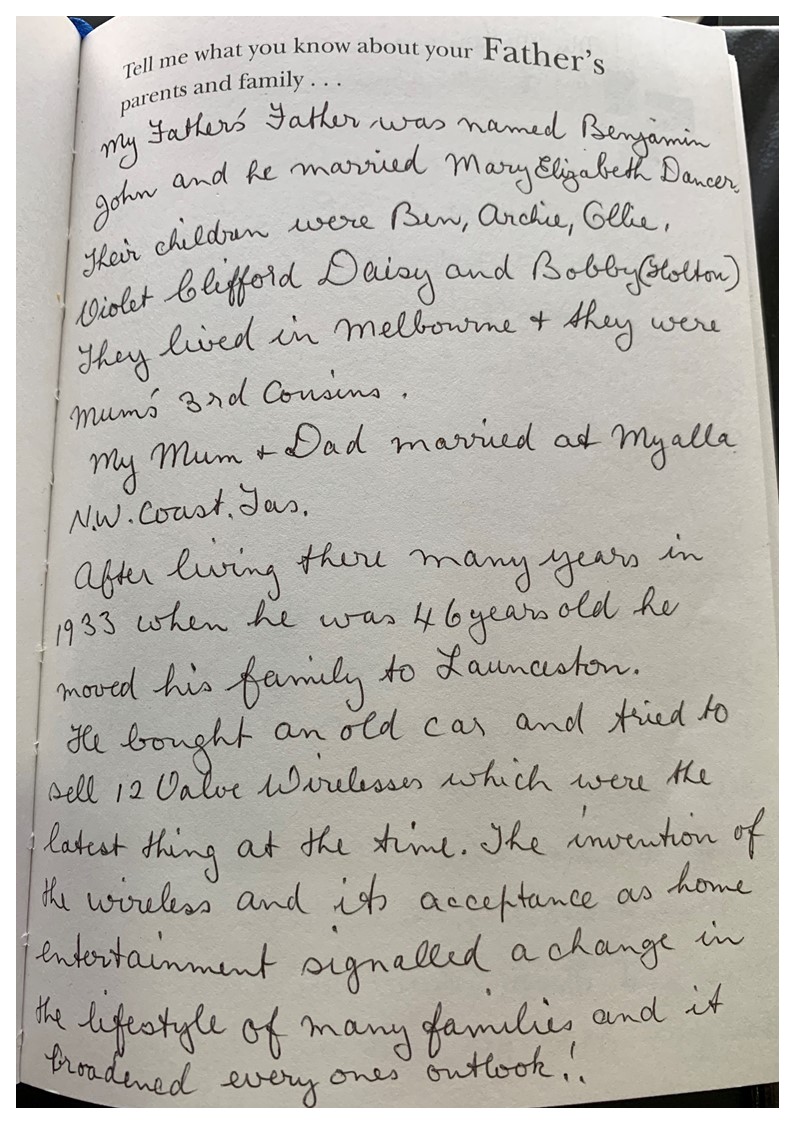 Tell me what you know about your Father's
parents and family . . .
My Father's Father was named Benjamin
John and he married Mary Elizabeth Dancer.
Their children were Ben, Archie, Ollie,
Violet Clifford Daisy and Bobby (Holton)
They lived in Melbourne + they were
Mum's 3rd Cousins.
My Mum + Dad married at Myalla
N.W. Coast. Tas.
After living there many years in
1933 when he was 46 years old he
moved his family to Launceston.
He bought an old car and tried to
sell 12 Valve Wirelesses which were the
latest thing at the time. The invention of
the wireless and its acceptance as home
entertainment signalled a change in
the lifestyle of many families and it
broadened every ones outlook!.